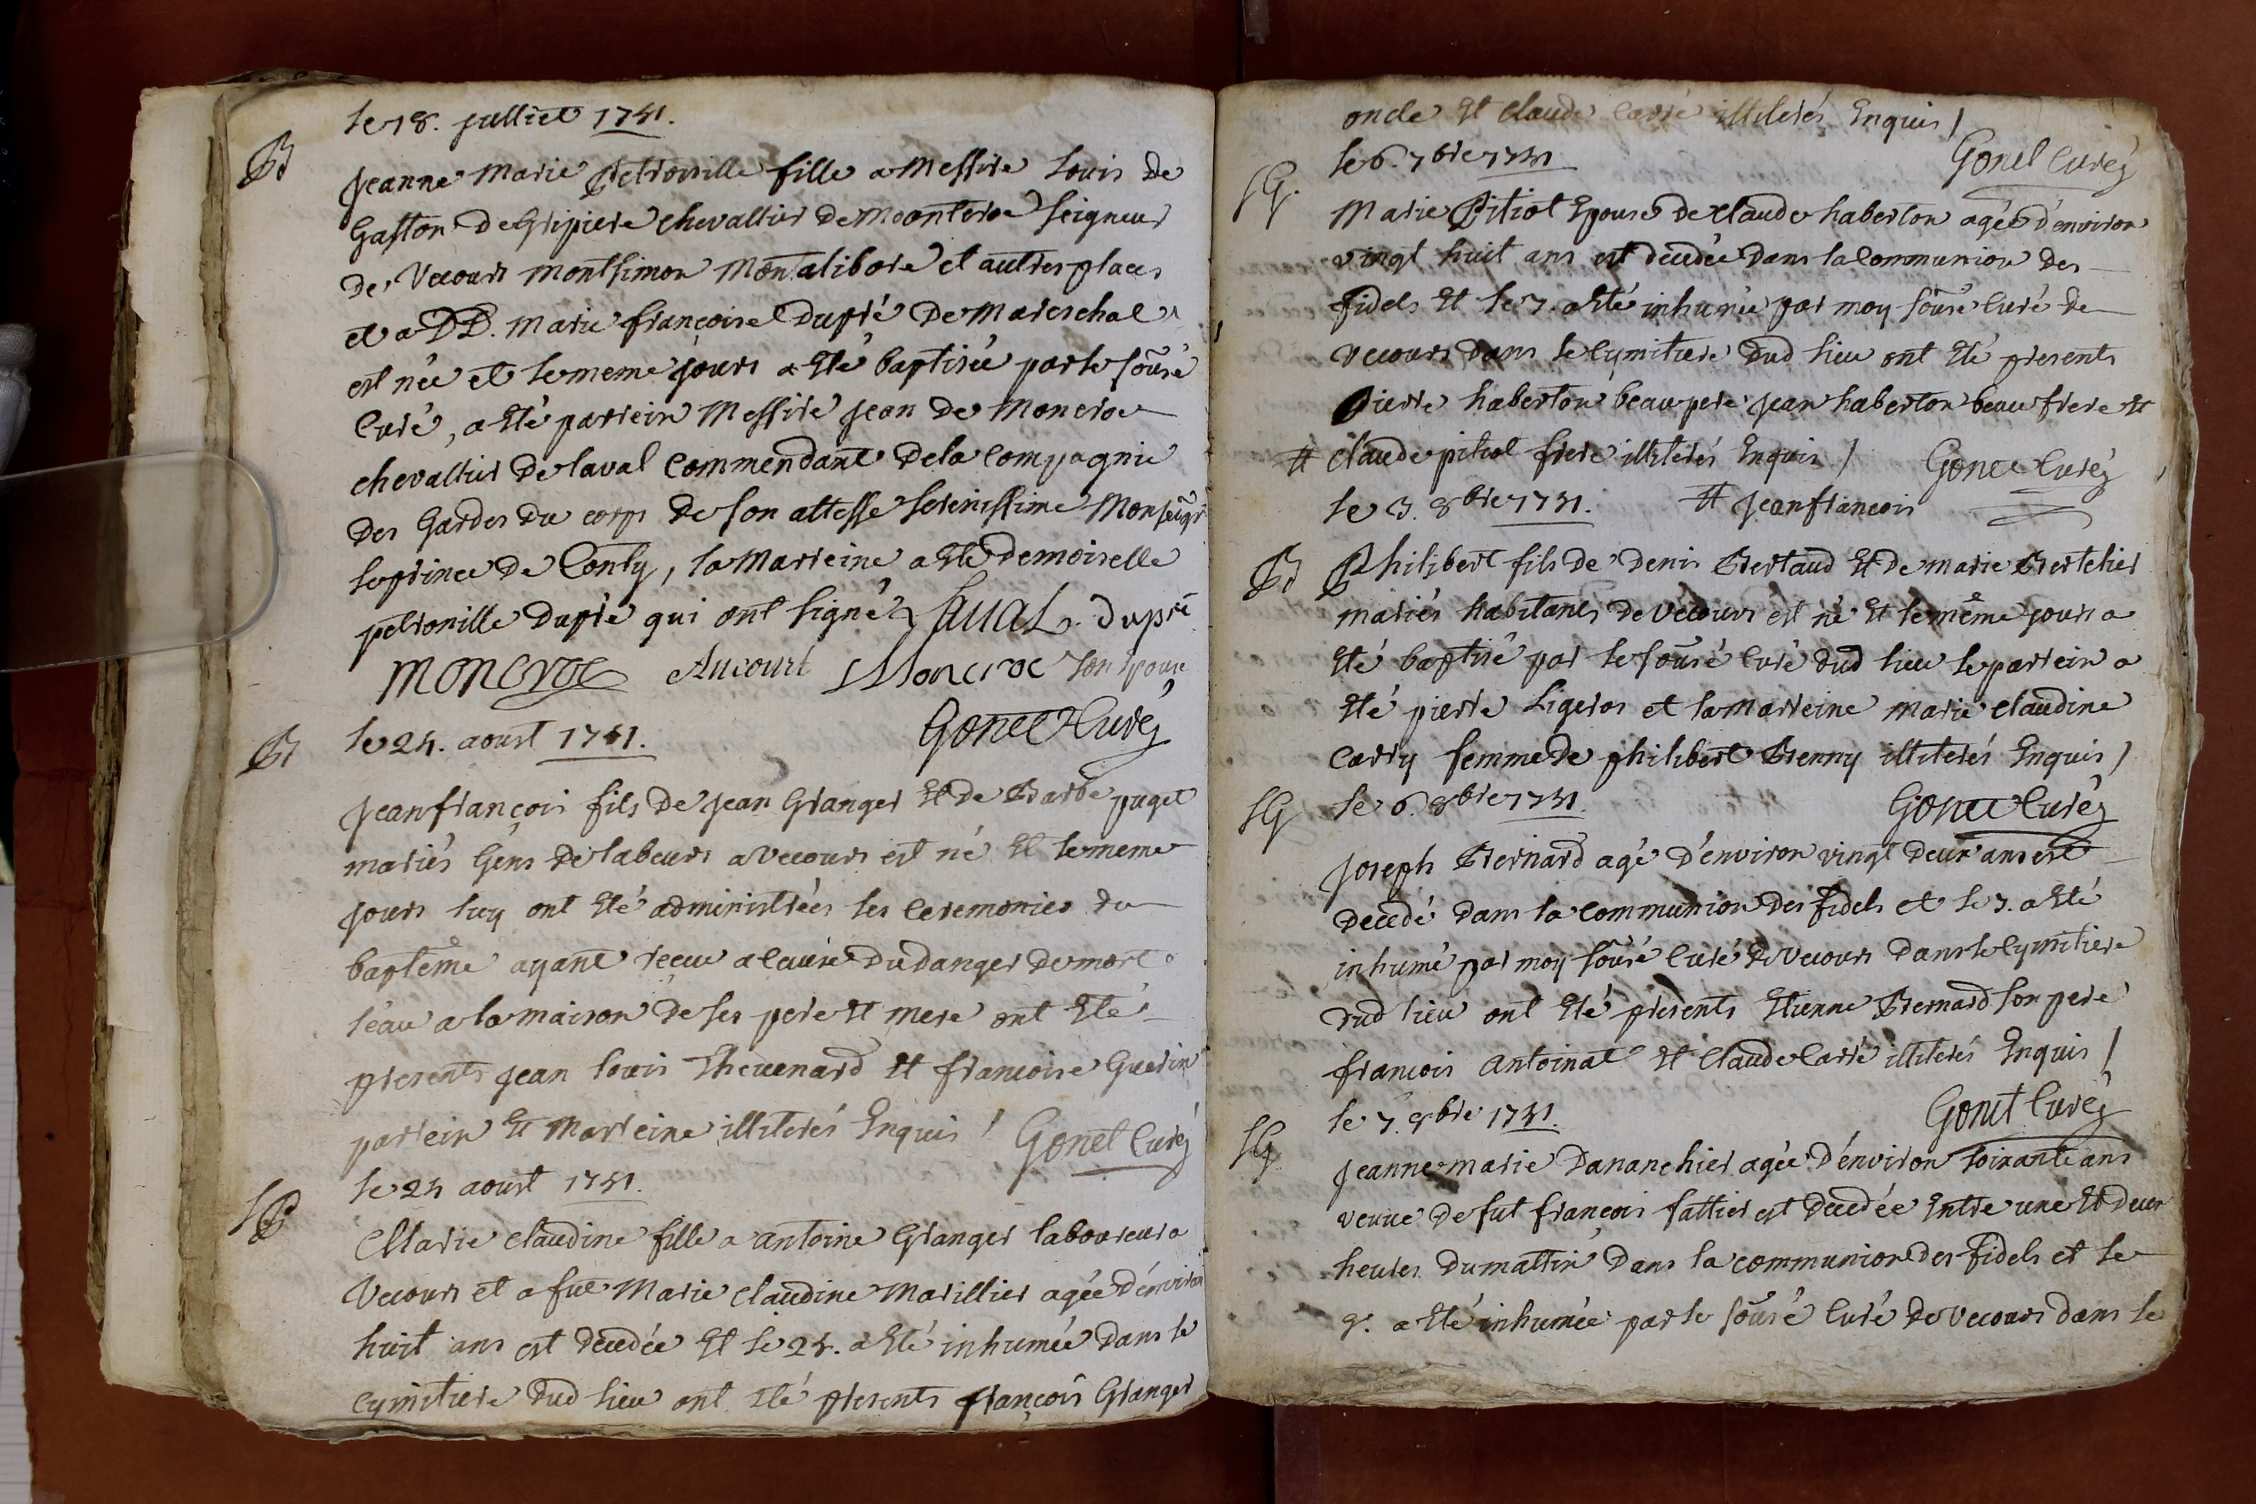 le 18. julliet 1751.
B
Jeanne Marie Petronille fille a Messire Louis de
Gaston de Gripiere chevallier de Moontcroc Seigneur
de Vecours Montsimon Montalibore et autres places
et a DD. Marie françoise Dupré de Mareschal
est née et le meme jours a Eté baptisée par le sousé
Curé, a Eté parrein Messire Jean de Moncroc
chevallier de laval Commendant de la Compagnie
des Gardes du corps de son altesse serenissime Monseigr
le prince de Conty, la Marreine a Eté demoiselle
petronille Dupré qui ont signé Laval. dupré
Moncroc Aucourt Moncroc son epoux
Gonet Curé
B
le 24. aoust 1751.
Jean françois fils de Jean Granger Et de Barbe puget
mariés Gens de labeurs a vecours est né Et le meme
jours luy ont Eté administrées les Ceremonies du
baptême ayant reçeu a cause du danger de mort
l'eau a la maison de ses pere Et mere ont Eté
presents Jean louis Thevenard Et francoise Guerin
parrein Et Marreine illiterés Enquis / Gonet Curé
SP
le 24 aoust 1751.
Marie claudine fille a antoine Granger laboureur a
Vecours et a fue Marie claudine Marillier agée d'environ
huit ans est decedée Et le 25. a Eté inhumée dans le
cymitiere dud lieu ont Eté presents françois Granger
oncle Et claude Carré illiterés Enquis /
Gonet Curé
SG.
le 6. 7bre 1751
Marie Pitiot Epouse de claude haberton agée d'environ
vingt huit ans est decedée dans la Communion des
fidels Et le 7. a Eté inhumée par moy sousé Curé de
vecours dans le Cymitiere dud lieu ont Eté presents
Pierre haberton beaupere jean haberton beau frere Et
# claude pitiot frere illiterés Enquis / Gonet Curé
le 3. 8bre 1751. # jean francois
B
Philibert fils de Denis Bertaud Et de marie Bertelier
mariés habitants de vecours est né Et le même jours a
Eté baptisé par le sousé Curé dud lieu le parrein a
Eté pierre Ligeros et la Marreine marie claudine
Carry femme de philibert Brenny illiterés Enquis /
Gonet Curé
SG
le 6. 8bre 1751.
Joseph Bernard agé d'environ vingt deux ans est
decedé dans la Communion des fidels et le 7. a Eté
inhumé par moy sousé Curé de Vecours dans le Cymitiere
dud lieu ont Eté presents Etienne Bernard son pere
francois antoinat Et Claude Carré illiterés Enquis /
Gonet Curé
SG
le 7. 8bre 1751.
Jeanne marie Dananchier agée d'environ soixante ans
veuve de fut francois fattier est decedée Entre une Et deux
heures du mattin dans la communion des fidels et le
8. a Eté inhumée par le sousé Curé de vecours dans le